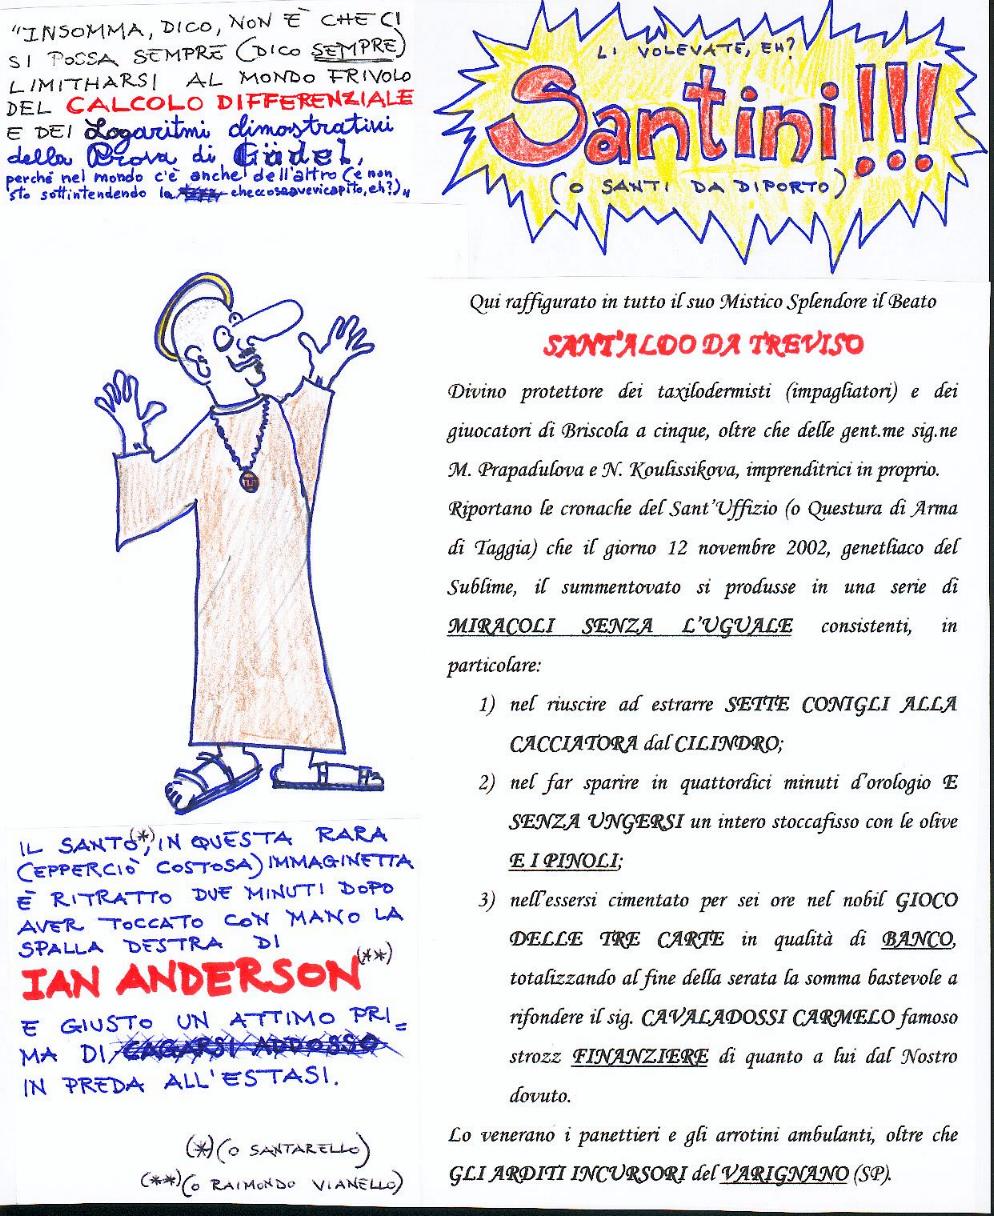 "INSOMMA, DICO, NON È CHE CI
SI POSSA SEMPRE (DICO SEMPRE)
LIMITHARSI AL MONDO FRIVOLO
DEL CALCOLO DIFFERENZIALE
E DEI Logaritmi dimostrativi
della Prova di Gödel,
perché nel mondo c'è anche dell'altro (e non
sto sottintendendo la checcosaavevicapito, eh?)"
LI VOLEVATE, EH?
Santini!!!
(O SANTI DA DIPORTO)
Qui raffigurato in tutto il suo Mistico Splendore il Beato
SANT'ALDO DA TREVISO
Divino protettore dei taxilodermisti (impagliatori) e dei
giuocatori di Briscola a cinque, oltre che delle gent.me sig.ne
M. Prapadulova e N. Koulissikova, imprenditrici in proprio.
Riportano le cronache del Sant'Uffizio (o Questura di Arma
di Taggia) che il giorno 12 novembre 2002, genetliaco del
Sublime, il summentovato si produsse in una serie di
MIRACOLI SENZA L'UGUALE consistenti, in
particolare:
1) nel riuscire ad estrarre SETTE CONIGLI ALLA
CACCIATORA dal CILINDRO;
2) nel far sparire in quattordici minuti d'orologio E
SENZA UNGERSI un intero stoccafisso con le olive
E I PINOLI;
3) nell'essersi cimentato per sei ore nel nobil GIOCO
DELLE TRE CARTE in qualità di BANCO,
totalizzando al fine della serata la somma bastevole a
rifondere il sig. CAVALADOSSI CARMELO famoso
strozz FINANZIERE di quanto a lui dal Nostro
dovuto.
Lo venerano i panettieri e gli arrotini ambulanti, oltre che
GLI ARDITI INCURSORI del VARIGNANO (SP).
IL SANTO(*), IN QUESTA RARA
(EPPERCIÒ COSTOSA) IMMAGINETTA
È RITRATTO DUE MINUTI DOPO
AVER TOCCATO CON MANO LA
SPALLA DESTRA DI
IAN ANDERSON(**)
E GIUSTO UN ATTIMO PRI=
MA DI CAGARSI ADDOSSO
IN PREDA ALL'ESTASI.
(*)(O SANTARELLO)
(**)(O RAIMONDO VIANELLO)